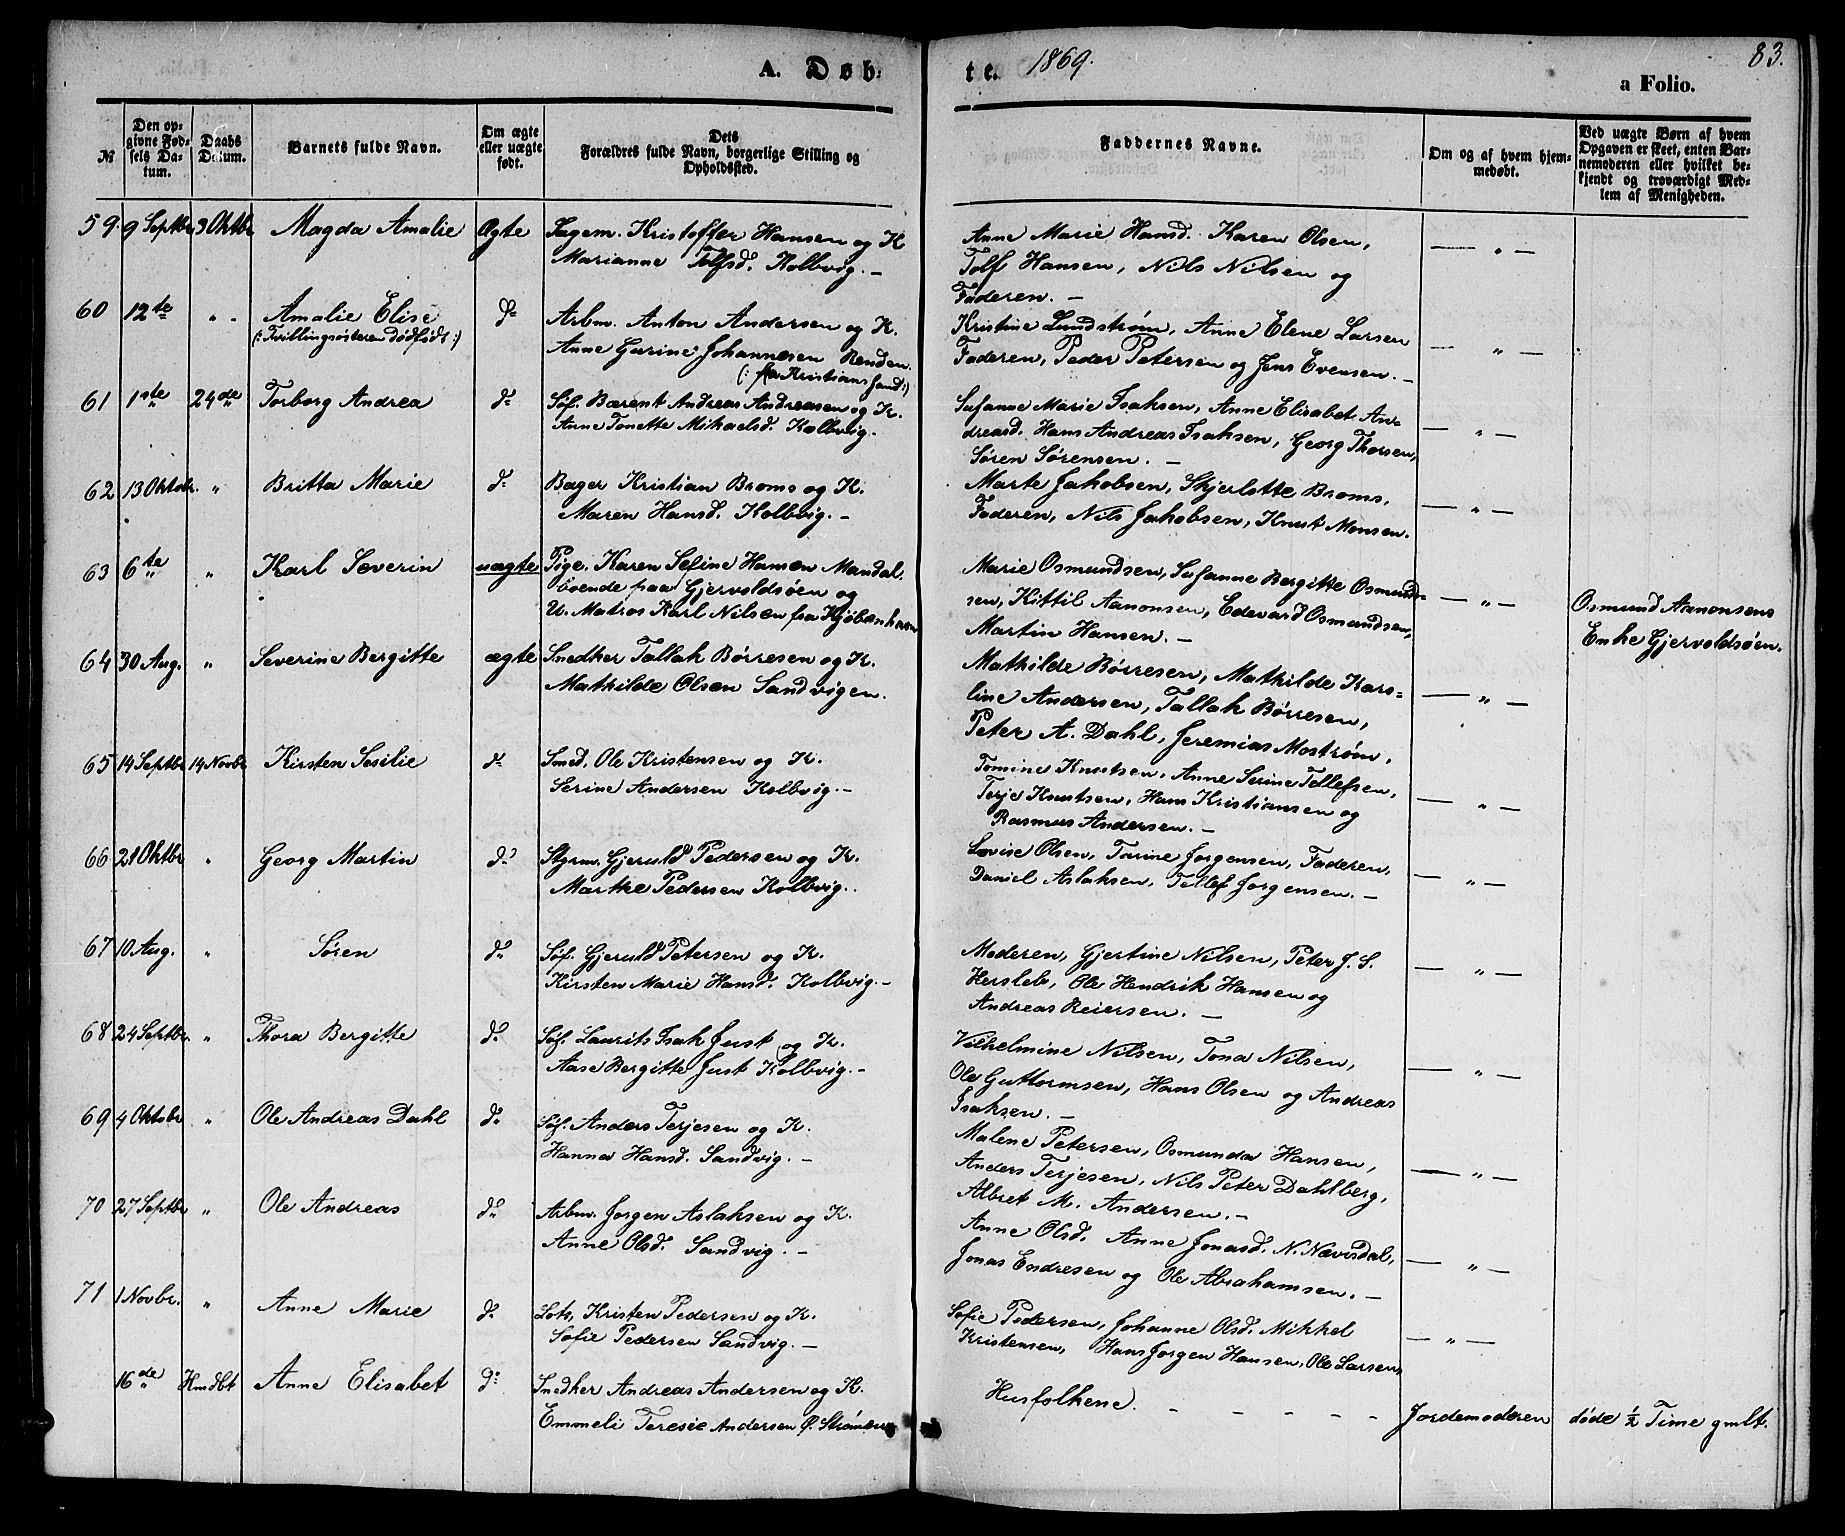 A. Døb-
te. 1869.
83.
a Folio.
№
Den opgivne Fødsels Datum.
Daabs Datum.
Barnets fulde Navn.
Om ægte eller uægte født.
Dets Forældres fulde Navn, borgerlige Stilling og Opholdssted.
Faddernes Navne.
Om og af hvem hjemmedøbt.
Ved uægte Børn af hvem Opgaven er skeet, enten Barnemoderen eller hvilket bekjendt og troværdigt Medlem af Menigheden.
59. 9 Septbr 3 Oktbr Magda Amalie Ægte Sagem. Kristoffer Hansen og K
Marianne Tolfsd. Kolbvig. —
Anne Marie Hansd. Karen Olsen,
Tolf Hansen, Nils Nilsen og
Faderen. —
— " —
60 12te " Amalie Elise do Arbm. Anton Andersen og K.
(: Tvillingsøsteren dødfødt :)
Anne Gurine Johannesen Renden.
(: fra Kristianssand :)
Kristine Lundstrøm, Anne Elene Larsen
Faderen, Peder Petersen og Jens Evensen. —
— " —
61 1ste 24de Torborg Andrea do Søf. Bærent Andreas Andreasen og K.
Anne Tonette Mikaelsd. Kolbvig.
Susanne Marie Isaksen, Anne Elisabet An-
dreasd. Hans Andreas Isaksen, Georg Thorsen,
Søren Sørensen. —
— " —
62 13 Oktobr. " Britta Marie do Bager Kristian Broms og K.
Maren Hansd. Kolbvig. —
Marte Jakobsen, Skjerlotte Broms,
Faderen, Nils Jakobsen, Knut Monsen.
— " —
63 6te " Karl Severin uægte Pige. Karen Sefine Hansen Mandal.
boende paa Gjervoldsøen og
U. Matros Karl Nilsen fra Kjøbenhavn
Marie Osmundsen, Susanne Bergitte Osmund-
sen, Kittil Aanonsen, Edevard Osmundsen,
Martin Hansen. —
— " —
Osmund Aanonsens
Enke Gjervoldsøen.
64 30 Aug. " Severine Bergitte ægte Snedker Tallak Børresen og K.
Mathilde Olsen Sandvigen.
Mathilde Børresen, Mathilde Karo-
line Andersen, Tallak Børresen,
Peter A. Dahl, Jeremias Mostrøm,
— " —
65 14 Septbr 14 Novbr Kirsten Sesilie do Smed. Ole Kristensen og K.
Serine Andersen Kolbvig. —
Tomine Knutsen, Anne Serine Tellefsen,
Terje Knutsen, Hans Kristiansen og
Rasmus Andersen. —
— " —
66 21 Oktbr " Georg Martin do Styrm. Gjeruld Pedersen og K.
Marthe Pedersen Kolbvig.
Lovise Olsen, Torine Jorgensen, Faderen,
Daniel Aslaksen, Tellef Jorgensen. —
— " —
67 10 Aug. " Søren do Søf. Gjeruld Petersen og K.
Kirsten Marie Hansd. Kolbvig. —
Moderen, Gjertine Nilsen, Peter J. S.
Hersleb, Ole Hendrik Hansen og
Andreas Reiersen. —
— " —
68 24 Septbr. " Thora Bergitte do Søf. Laurits Isak Just og K.
Aase Bergitte Just Kolbvig. —
Vilhelmine Nilsen, Tona Nilsen,
Ole Guttormsen, Hans Olsen og Andreas
Isaksen. —
— " —
69 4 Oktobr " Ole Andreas Dahl do Søf. Anders Terjesen og K.
Hanna Hansd. Sandvig. —
Malene Petersen, Osmunda Hansen,
Anders Terjesen, Nils Peter Dahlberg,
Albret M. Andersen. —
— " —
70 27 Septbr " Ole Andreas do Arbm. Jorgen Aslaksen og K.
Anne Olsd. Sandvig. —
Anne Olsd. Anne Jonasd. N. Nævesdal,
Jonas Endresen og Ole Abrahamsen. —
— " —
71 1 Novbr. " Anne Marie do Lots, Kristen Pedersen og K.
Sofie Pedersen Sandvig. —
Sofie Pedersen, Johanne Olsd. Mikkel
Kristensen, Hans Jorgen Hansen, Ole Larsen
— " —
16de Hmdbt Anne Elisabet do Snedker Andreas Andersen og K.
Emmeli Teresie Andersen Ø. Strømmen
Husfolkene. - - - - -
Jordemoderen
døde ½ Time gmlt.